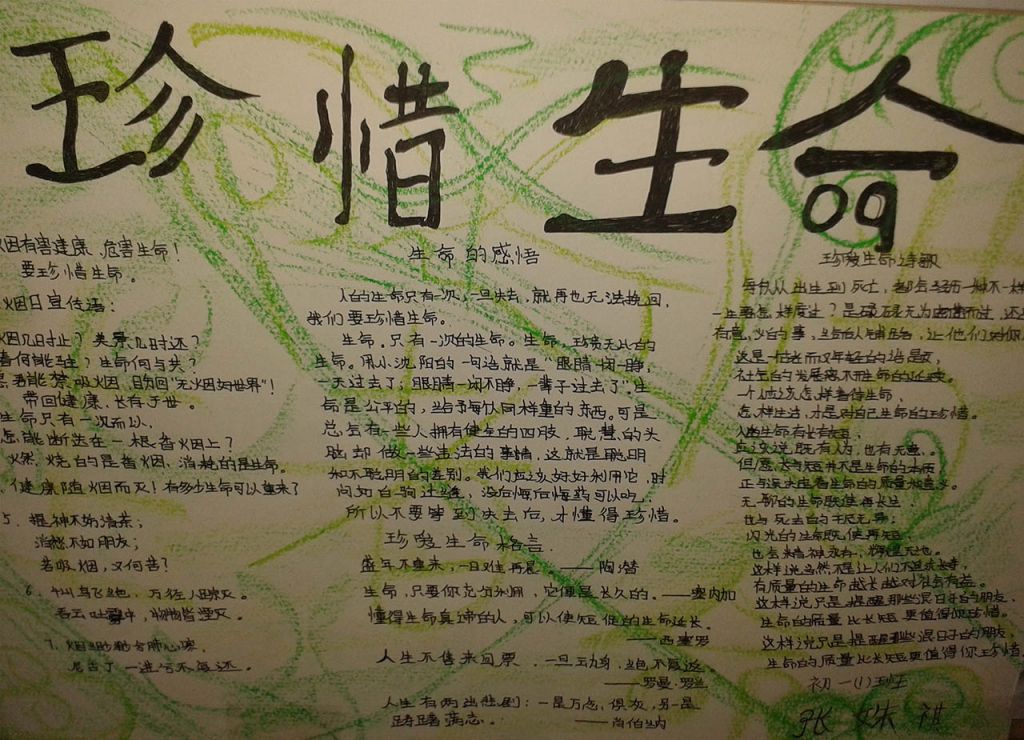 珍惜生命
09
烟有害健康,危害生命!
要珍惜生命。
烟日宣传语:
烟几时止?美景几时还?
生命何与失?
禁吸烟,
带回健康,长存于世。
生命只有一次而以,
怎能断送在一根香烟上?
烧的是香烟、消耗的是生命。
健康随烟而灭!有多少生命可以重来
5、提神不妨清茶;
消愁不如朋友;
若吸烟,又何苦?
6、千山鸟飞绝,万径人踪灭。
吞云吐雾中,
7、
生命的感悟
人的生命只有一次,一旦失去,就再也无法挽回,
我们要珍惜生命。
生命,只有一次的生命。生命,珍贵无比的
生命。用小沈阳的一句话就是“眼睛一闭一睁,
一天过去了;眼睛一闭不睁,一辈子过去了”生
命是公平的,给予每个人同样重的东西。可是
总会有一些人拥有健全的四肢,聪慧的头
脑却做一些违法的事情,这就是聪明
和不聪明的差别。我们应该好好利用它,时
间如白驹过隙,没后悔药可以吃
所以不要等到失去后,才懂得珍惜。
珍爱生命格言
盛年不重来,一日难再晨——陶潜
生命,只要你充分利用,它便是长久的。——塞内加
懂得生命真谛的人,可以使短促的生命延长。
——西塞罗
人生不售来回票,一旦动身,绝不能返。
——罗曼·罗兰
人生有两出悲剧:一是万念俱灰,另一是
踌躇满志。——肖伯纳
珍爱生命诗歌
每个人从出生到死亡,都会经历一些不一样
一生要怎样度过?是碌碌无为
这是一个古老而又年轻的话题,
社会的发展离不开生命的延续。
一个人应该怎样看待生命,
怎样生活,才是对自己生命的珍惜。
人的生命有长有短,
应该说既有人为,也有无意。
但愿长与短并不是生命的本质
正与误决定着生命的质量和意义。
无聊的生命既使再长生
也与死去的
闪光的生命既使再短,
也会精神永存,辉煌天地。
这样说当然不是让人们不追求长寿,
有质量的生命越长越对社会有益。
这样说只是提醒那些混日子的朋友,
生命的质量比长短更值得你珍惜。
这样说只是提醒那些混日子的朋友,
生命的质量比长短更值得你珍惜
初一(1)班
张姝祺